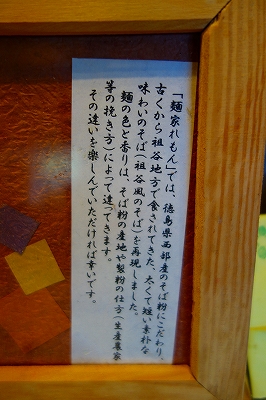 「麺家れもん」では、徳島県西部産のそば粉にこだわり、
古くから祖谷地方で食されてきた、太くて短い素朴な
味わいのそば(祖谷風のそば)を再現しました。
麺の色と香りは、そば粉の産地や製粉の仕方(生産農家
等の挽き方)によって違ってきます。
その違いを楽しんでいただければ幸いです。